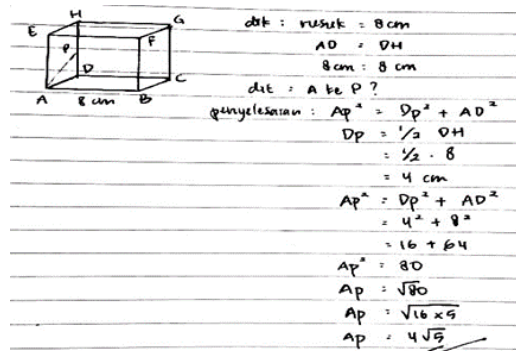 H G
E F
P
D C
A 8 cm B
dik : rusuk = 8 cm
AD = DH
8 cm = 8 cm
dit : A ke P ?
penyelesaian : AP² = DP² + AD²
DP = 1/2 DH
= 1/2 . 8
= 4 cm
AP² = DP² + AD²
= 4² + 8²
= 16 + 64
AP² = 80
AP = √80
AP = √16 x 5
AP = 4√5